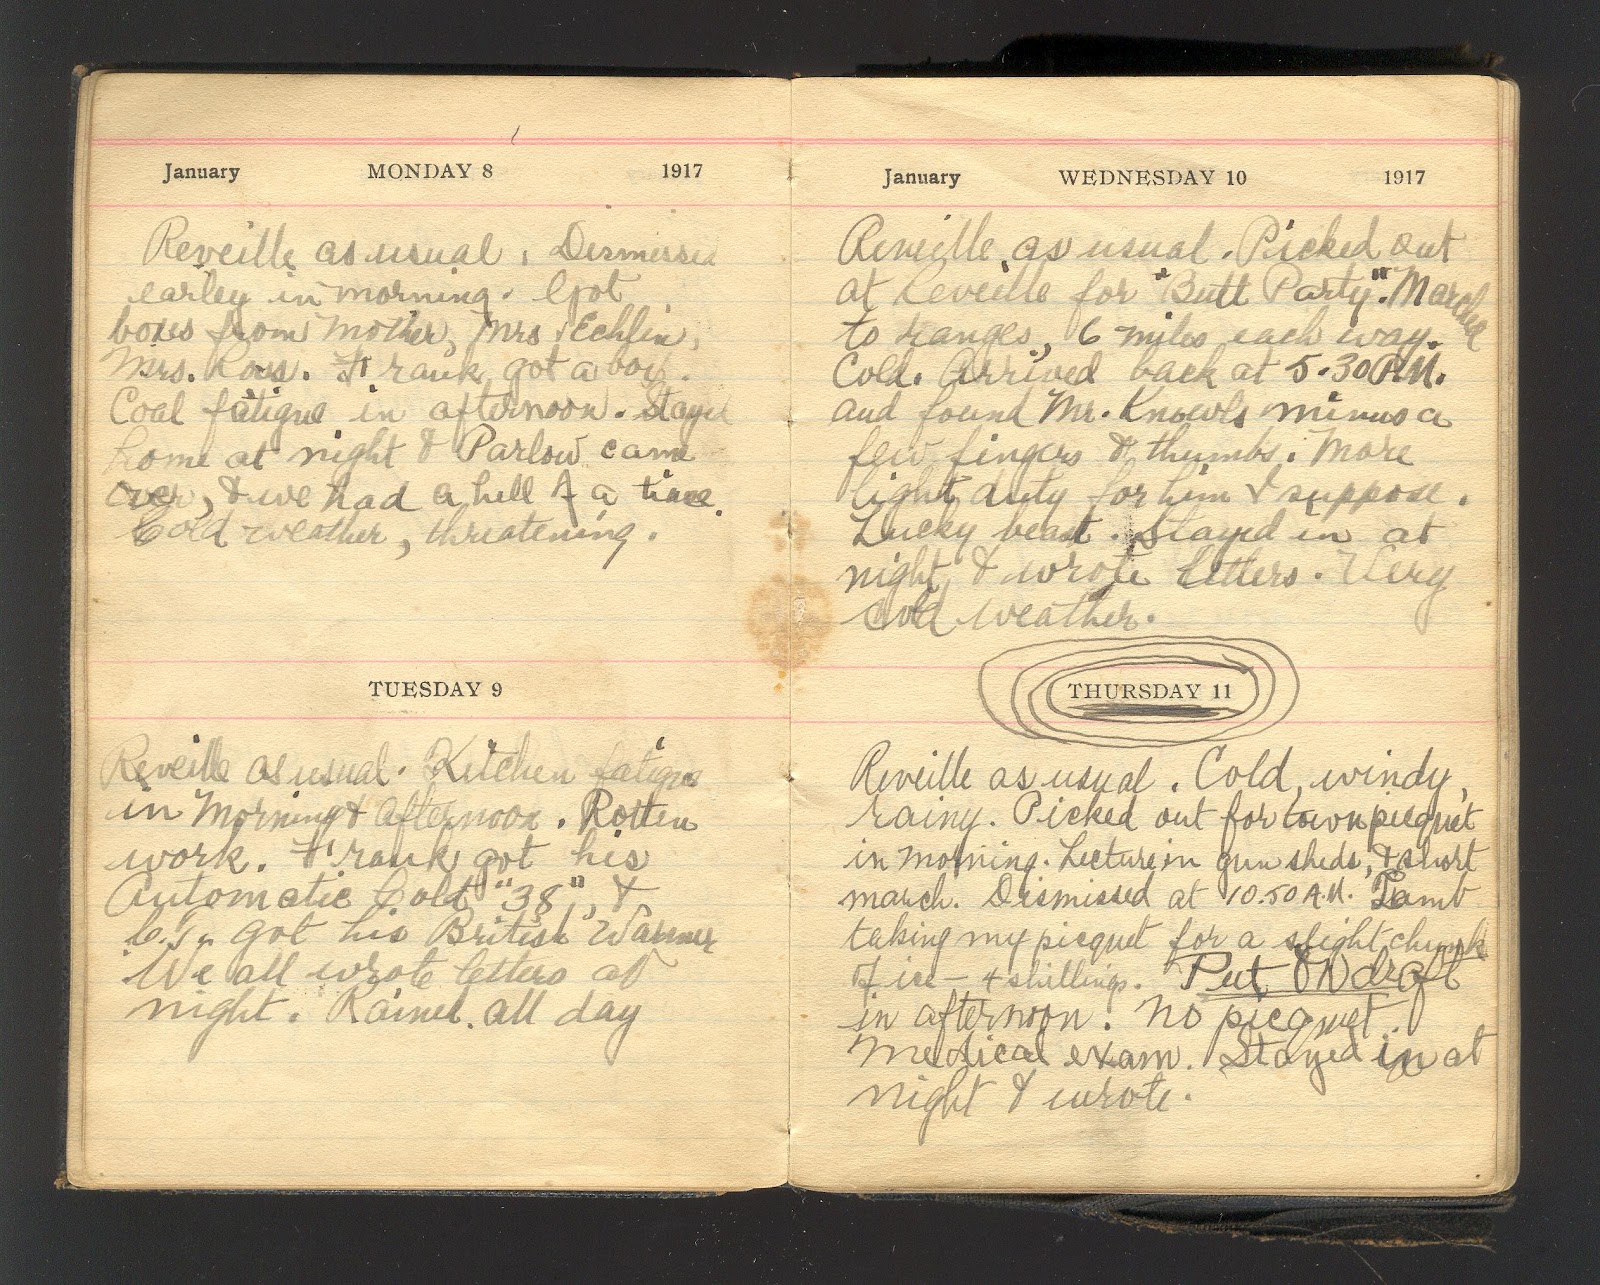 January MONDAY 8 1917
Reveille as usual. Dismissed
earley in morning. Got
boxes from Mother, Mrs Echlin,
Mrs. Ross. Frank got a box.
Coal fatigue in afternoon. Stayed
home at night & Parlow came
over, & we had a hell of a time.
Cold weather, threatening.
TUESDAY 9
Reveille as usual. Kitchen fatigue
in Morning & afternoon. Rotten
work. Frank got his
Automatic Colt "38", &
got his British Warmer
We all wrote letters at
night. Rained all day
January WEDNESDAY 10 1917
Reveille as usual. Picked out
at Reveille for "Butt Party". Marched
to ranges, 6 miles each way.
Cold. Arrived back at 5.30 P.M.
and found Mr. Knowls minus a
few fingers & thumbs. More
light duty for him I suppose.
Lucky beast. Stayed in at
night, & wrote letters. Very
cold weather.
THURSDAY 11
Reveille as usual. Cold, windy,
rainy. Picked out for town picquet
in morning. Lecture in gun sheds, & short
march. Dismissed at 10.50 A.M. Lamb
taking my picquet for a slight chunk
of ice - 4 shillings. Put ON draft
in afternoon! No picquet.
Medical exam. Stayed in at
night & wrote.